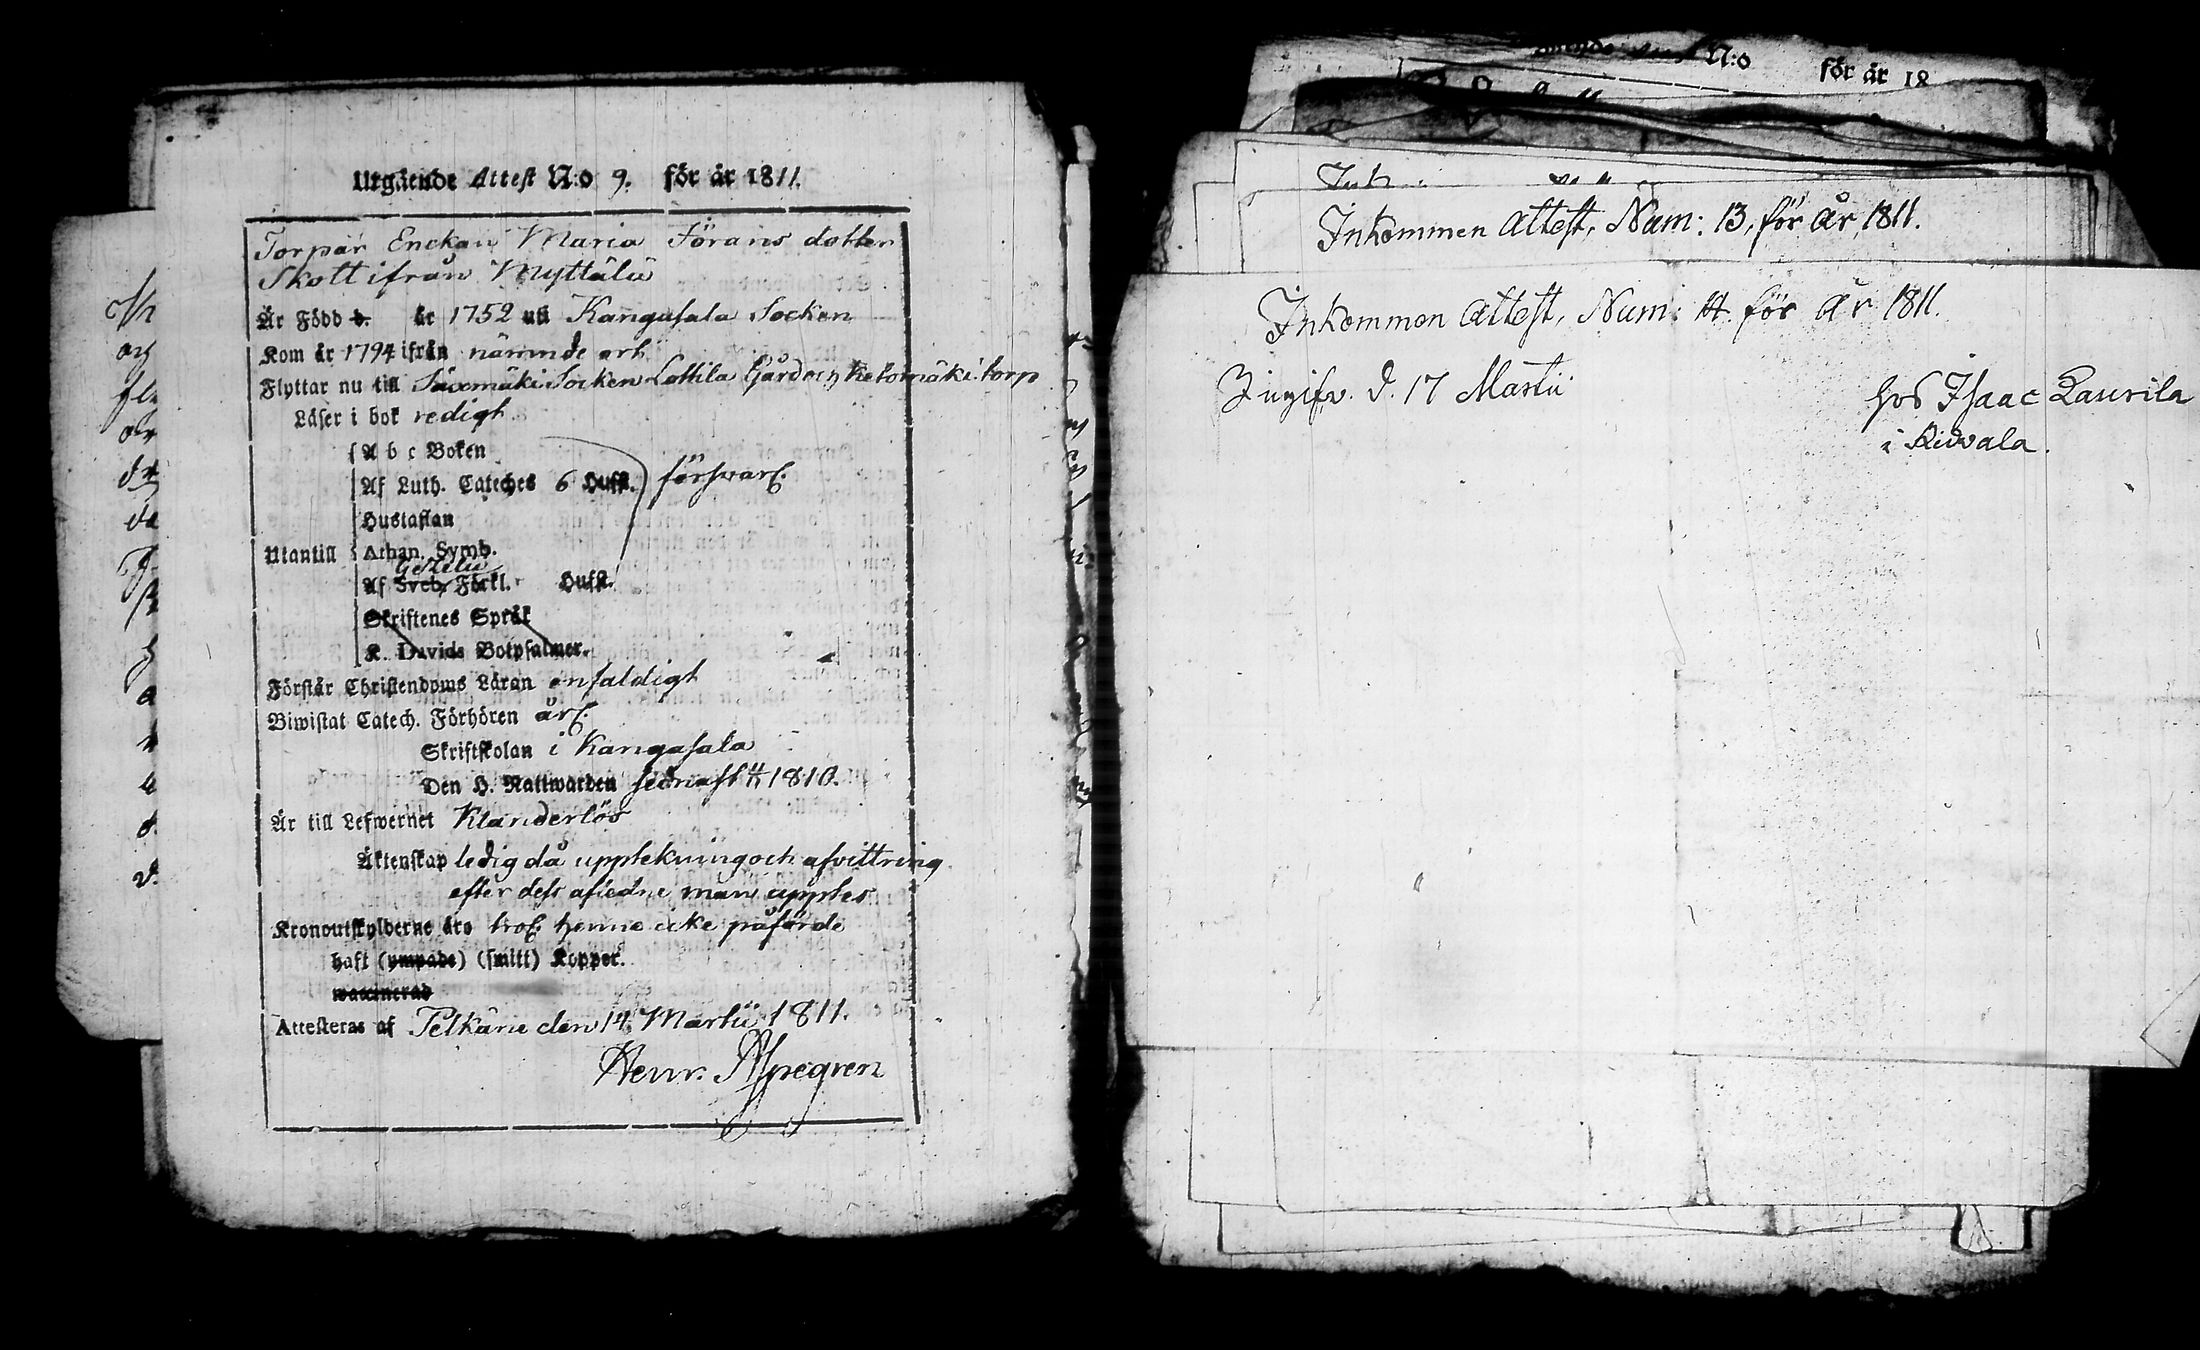 Utgående Attest N:o 9. för år 1811.
Torpar Enckan Maria Jörans dotter
Skott ifrån Myttälä
Är Född d. år 1752 uti Kangasala Socken
Kom år 1794 ifrån nämnde ort
Flyttar nu till Säxmäki Socken Lottila Gård och Ketomäki torp
Läser i bok redigt
A b c Boken
Af Luth. Cateches 6 Hufst. försvarl.
Hustaflan
Utantill Athan. Symb.
Gezelii
Af Sveb. Förkl. Hufst.
Skriftenes Språk
K. Davids Botpsalmer.
Förstår Christendoms Läran enfaldigt
Biwistat Catech. Förhören årl.
Skriftskolan i Kangasala
Den H. Nattwarden sednast 4/11 1810.
Är till Lefwernet Klanderlös
Äktenskap ledig då uppteckning och afvittring
efter dess afledne man upptes
Kronoutskylderne äro trol. henne icke påförde
haft (ympade) (smitt) Koppor.
waccinerad
Attesteras af Pelkäne den 14 Martii 1811.
Henr. Alpegren
N:o för år 18
Inkommen Attest, Num: 13, för År 1811.
Inkommen Attest, Num: 14. för År 1811.
Ingifv. d. 17 Martii
hos Isaac Laurila
i Ridvala.